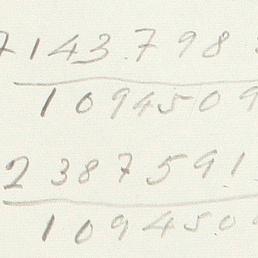 7143.798
1094509
2387591.
109450